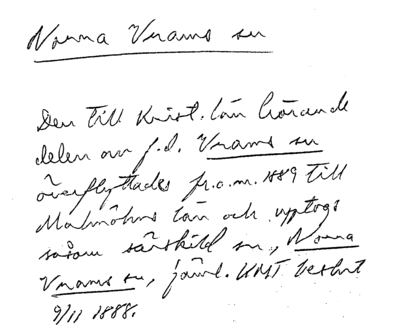 Norra Vrams sn
Den till Krist. län hörande
delen av f.d. Vrams sn
överflyttades fr.o.m. 1889 till
Malmöhus län och upptogs
såsom särskild sn, Norra
Vrams sn, jäml. KMT beslut
9/11 1888.